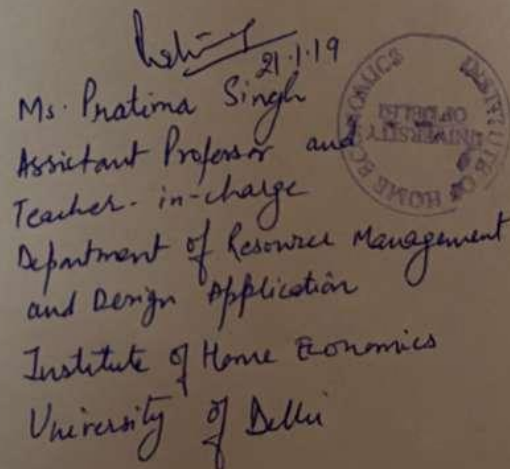 21.1.19
Ms. Pratima Singh
Assistant Professor and
Teacher-in-charge
Department of Resource Management
and Design Application
Institute of Home Economics
University of Delhi
INSTITUTE OF HOME ECONOMICS
UNIVERSITY
OF DELHI